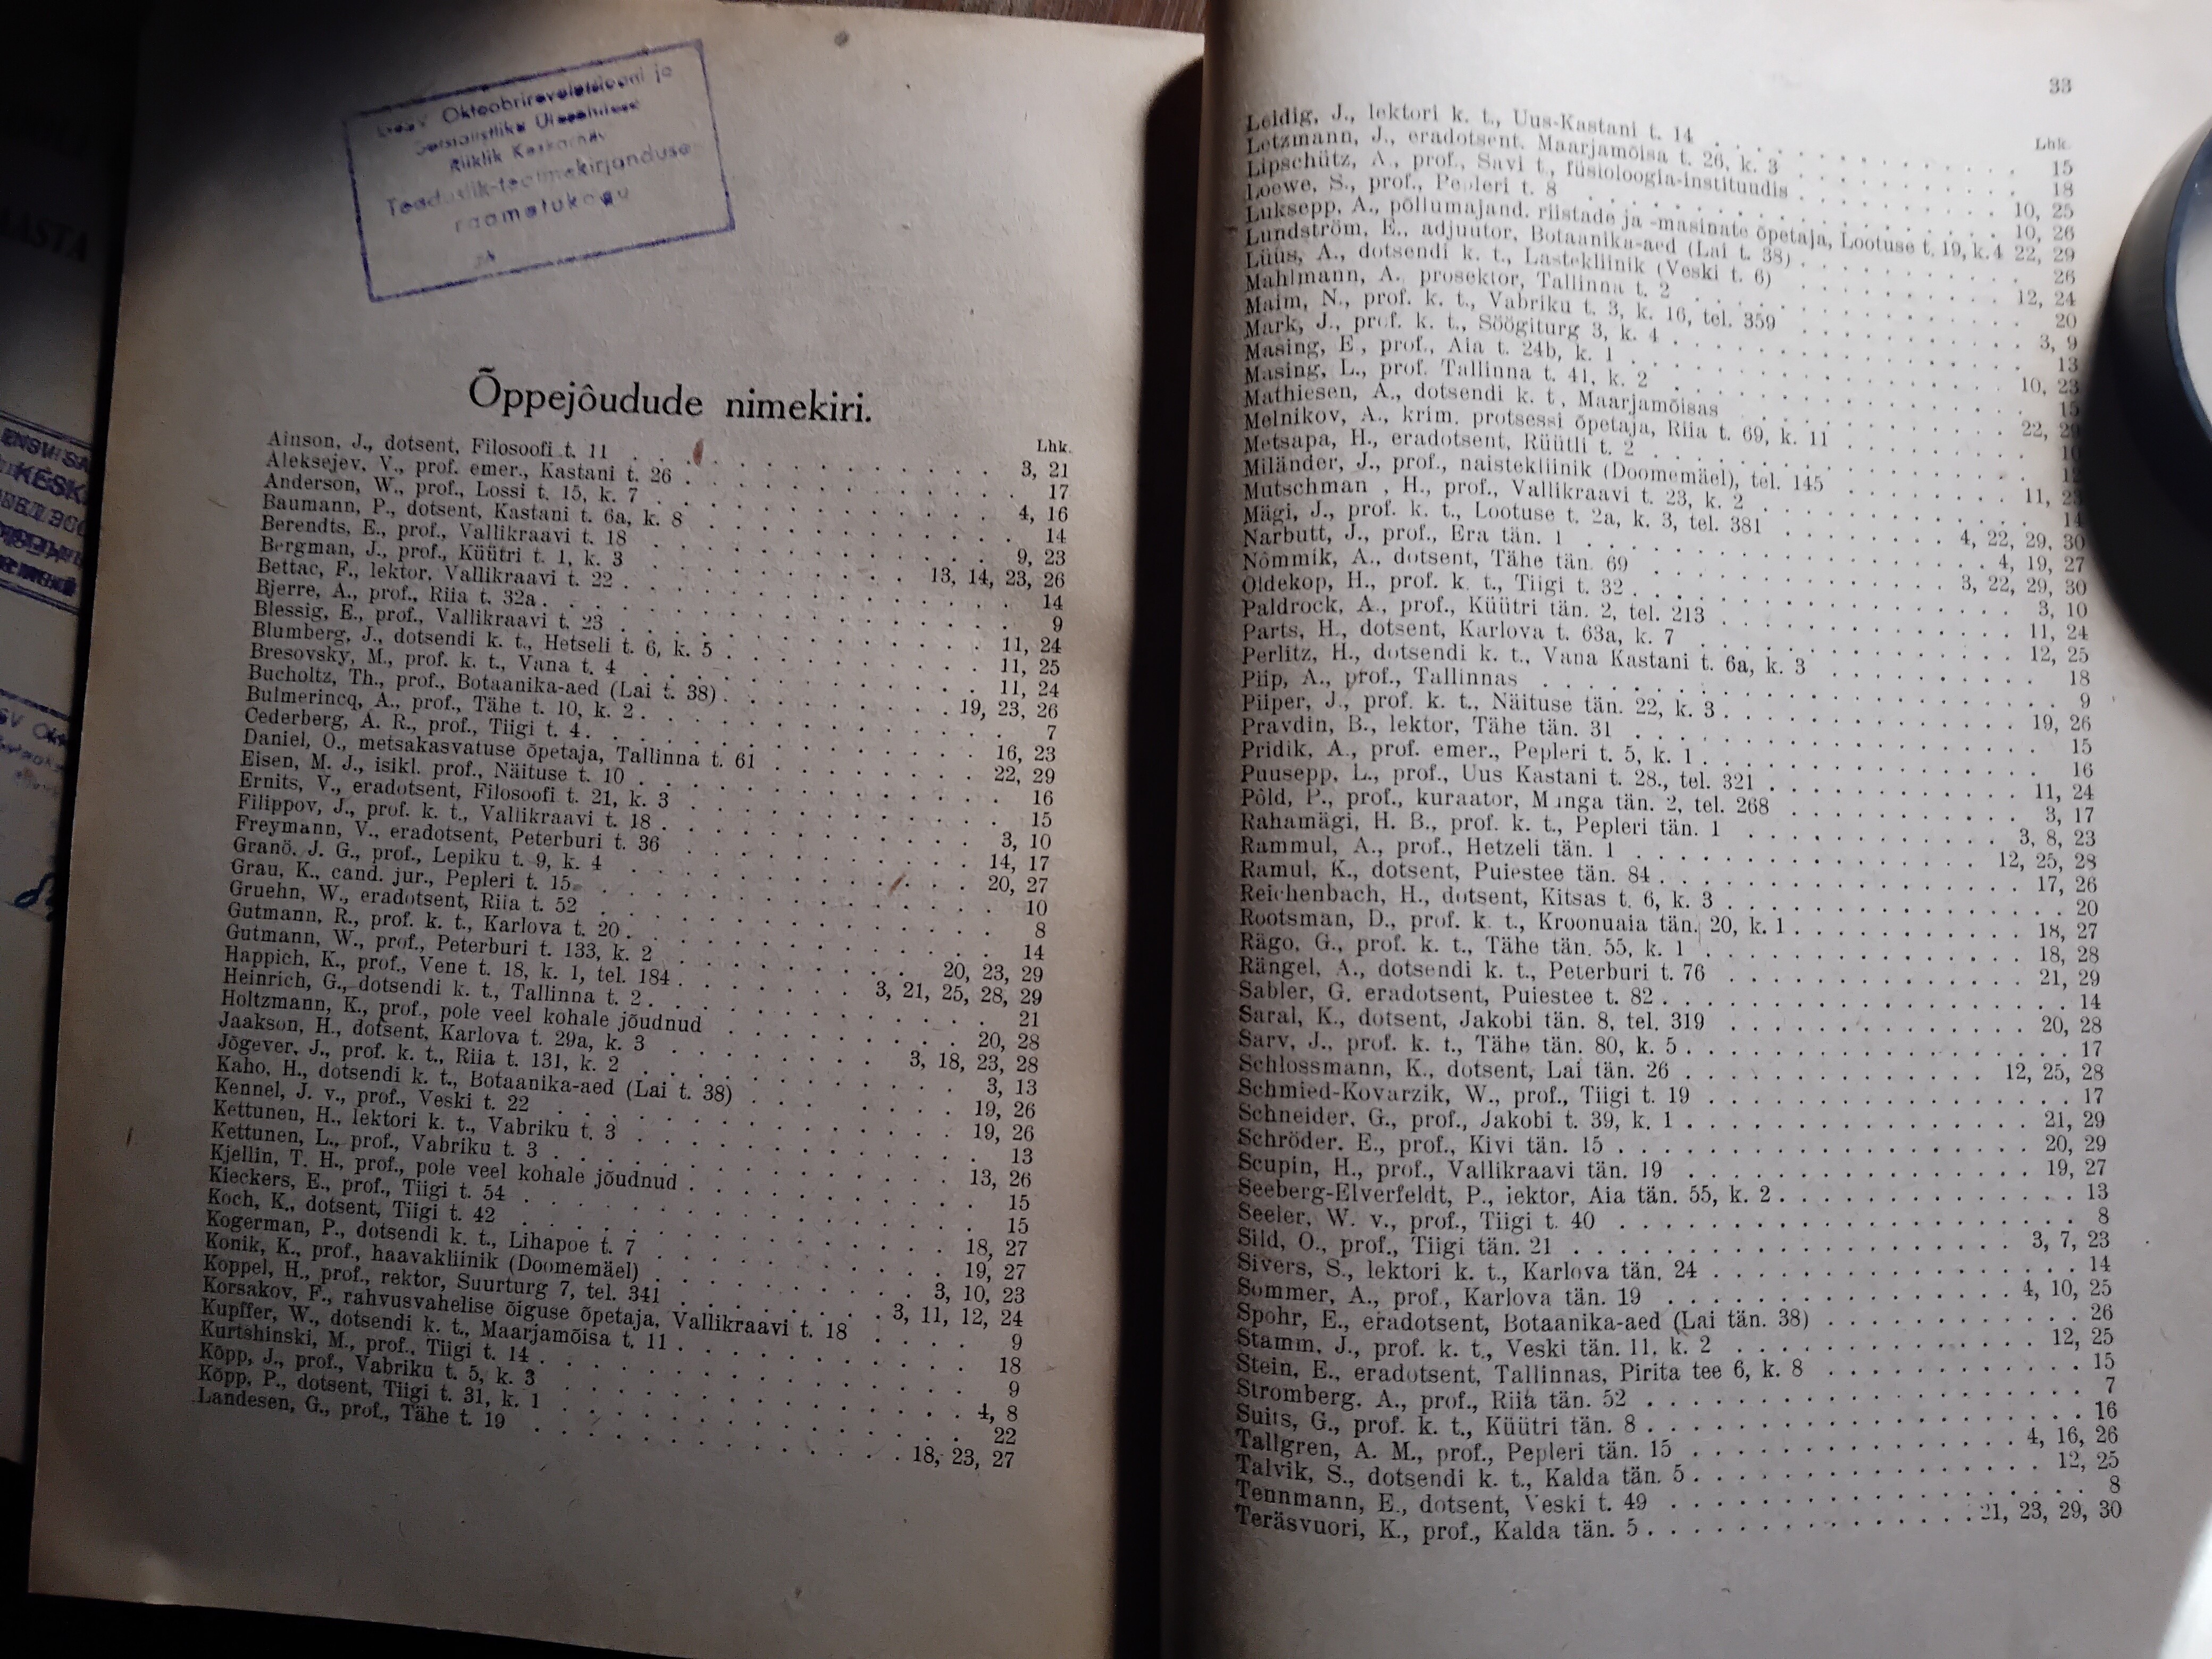 Oktoobrirevolutsiooni ja
Sotsialistliku Ülesehituse
Riiklik Keskarhiiv
Teaduslik-teatmekirjanduse
raamatukogu
Õppejõudude nimekiri.
Lhk.
Ainson, J., dotsent, Filosoofi t. 11 . . . 3, 21
Aleksejev, V., prof. emer., Kastani t. 26 . . . 17
Anderson, W., prof., Lossi t. 15, k. 7 . . . 4, 16
Baumann, P., dotsent, Kastani t. 6a, k. 8 . . . 14
Berendts, E., prof., Vallikraavi t. 18 . . . 9, 23
Bergman, J., prof., Küütri t. 1, k. 3 . . . 13, 14, 23, 26
Bettac, F., lektor, Vallikraavi t. 22 . . . 14
Bjerre, A., prof., Riia t. 32a . . . 9
Blessig, E., prof., Vallikraavi t. 23 . . . 11, 24
Blumberg, J., dotsendi k. t., Hetseli t. 6, k. 5 . . . 11, 25
Bresovsky, M., prof. k. t., Vana t. 4 . . . 11, 24
Bucholtz, Th., prof., Botaanika-aed (Lai t. 38) . . . 19, 23, 26
Bulmerincq, A., prof., Tähe t. 10, k. 2 . . . 7
Cederberg, A. R., prof., Tiigi t. 4 . . . 16, 23
Daniel, O., metsakasvatuse õpetaja, Tallinna t. 61 . . . 22, 29
Eisen, M. J., isikl. prof., Näituse t. 10 . . . 16
Ernits, V., eradotsent, Filosoofi t. 21, k. 3 . . . 15
Filippov, J., prof. k. t., Vallikraavi t. 18 . . . 3, 10
Freymann, V., eradotsent, Peterburi t. 36 . . . 14, 17
Granö, J. G., prof., Lepiku t. 9, k. 4 . . . 20, 27
Grau, K., cand. jur., Pepleri t. 15 . . . 10
Gruehn, W., eradotsent, Riia t. 52 . . . 8
Gutmann, R., prof. k. t., Karlova t. 20 . . . 14
Gutmann, W., prof., Peterburi t. 133, k. 2 . . . 20, 23, 29
Happich, K., prof., Vene t. 18, k. 1, tel. 184 . . . 3, 21, 25, 28, 29
Heinrich, G., dotsendi k. t., Tallinna t. 2 . . . 21
Holtzmann, K., prof., pole veel kohale jõudnud . . . 20, 28
Jaakson, H., dotsent, Karlova t. 29a, k. 3 . . . 3, 18, 23, 28
Jõgever, J., prof. k. t., Riia t. 131, k. 2 . . . 3, 13
Kaho, H., dotsendi k. t., Botaanika-aed (Lai t. 38) . . . 19, 26
Kennel, J. v., prof., Veski t. 22 . . . 19, 26
Kettunen, H., lektori k. t., Vabriku t. 3 . . . 13
Kettunen, L., prof., Vabriku t. 3 . . . 13, 26
Kjellin, T. H., prof., pole veel kohale jõudnud . . . 15
Kieckers, E., prof., Tiigi t. 54 . . . 15
Koch, K., dotsent, Tiigi t. 42 . . . 18, 27
Kogerman, P., dotsendi k. t., Lihapoe t. 7 . . . 19, 27
Konik, K., prof., haavakliinik (Doomemäel) . . . 3, 10, 23
Koppel, H., prof., rektor, Suurturg 7, tel. 341 . . . 3, 11, 12, 24
Korsakov, F., rahvusvahelise õiguse õpetaja, Vallikraavi t. 18 . . . 9
Kupffer, W., dotsendi k. t., Maarjamõisa t. 11 . . . 18
Kurtshinski, M., prof., Tiigi t. 14 . . . 9
Kõpp, J., prof., Vabriku t. 5, k. 3 . . . 4, 8
Kõpp, P., dotsent, Tiigi t. 31, k. 1 . . . 22
Landesen, G., prof., Tähe t. 19 . . . 18, 23, 27
33
Lhk.
Leidig, J., lektori k. t., Uus-Kastani t. 14 . . . 15
Letzmann, J., eradotsent, Maarjamõisa t. 26, k. 3 . . . 18
Lipschütz, A., prof., Savi t., füsioloogia-instituudis . . . 10, 25
Loewe, S., prof., Pepleri t. 8 . . . 10, 26
Luksepp, A., põllumajand. riistade ja -masinate õpetaja, Lootuse t. 19, k. 4 22, 29
Lundström, E., adjuutor, Botaanika-aed (Lai t. 38) . . . 26
Lüüs, A., dotsendi k. t., Lastekliinik (Veski t. 6) . . . 12, 24
Mahlmann, A. prosektor, Tallinna t. 2 . . . 20
Maim, N., prof. k. t., Vabriku t. 3, k. 16, tel. 359 . . . 3, 9
Mark, J., prof. k. t., Söögiturg 3, k. 4 . . . 13
Masing, E., prof., Aia t. 24b, k. 1 . . . 10, 23
Masing, L., prof. Tallinna t. 41, k. 2 . . . 15
Mathiesen, A., dotsendi k. t., Maarjamõisas . . . 22, 29
Melnikov, A., krim. protsessi õpetaja, Riia t. 69, k. 11 . . . 10
Metsapa, H., eradotsent, Rüütli t. 2 . . . 12
Miländer, J., prof., naistekliinik (Doomemäel), tel. 145 . . . 11, 23
Mutschman , H., prof., Vallikraavi t. 23, k. 2 . . . 14
Mägi, J., prof. k. t., Lootuse t. 2a, k. 3, tel. 381 . . . 4, 22, 29, 30
Narbutt, J., prof., Era tän. 1 . . . 4, 19, 27
Nõmmik, A., dotsent, Tähe tän. 69 . . . 3, 22, 29, 30
Oldekop, H., prof. k. t., Tiigi t. 32 . . . 3, 10
Paldrock, A., prof., Küütri tän. 2, tel. 213 . . . 11, 24
Parts, H., dotsent, Karlova t. 63a, k. 7 . . . 12, 25
Perlitz, H., dotsendi k. t., Vana Kastani t. 6a, k. 3 . . . 18
Piip, A., prof., Tallinnas . . . 9
Piiper, J., prof. k. t., Näituse tän. 22, k. 3 . . . 19, 26
Pravdin, B., lektor, Tähe tän. 31 . . . 15
Pridik, A., prof. emer., Pepleri t. 5, k. 1 . . . 16
Puusepp, L., prof., Uus Kastani t. 28., tel. 321 . . . 11, 24
Põld, P., prof., kuraator, Manga tän. 2, tel. 268 . . . 3, 17
Rahamägi, H. B., prof. k. t., Pepleri tän. 1 . . . 3, 8, 23
Rammul, A., prof., Hetzeli tän. 1 . . . 12, 25, 28
Ramul, K., dotsent, Puiestee tän. 84 . . . 17, 26
Reichenbach, H., dotsent, Kitsas t. 6, k. 3 . . . 20
Rootsman, D., prof. k. t., Kroonuaia tän. 20, k. 1 . . . 18, 27
Rägo, G., prof. k. t., Tähe tän. 55, k. 1 . . . 18, 28
Rängel, A., dotsendi k. t., Peterburi t. 76 . . . 21, 29
Sabler, G. eradotsent, Puiestee t. 82 . . . 14
Saral, K., dotsent, Jakobi tän. 8, tel. 319 . . . 20, 28
Sarv, J., prof. k. t., Tähe tän. 80, k. 5 . . . 17
Schlossmann, K., dotsent, Lai tän. 26 . . . 12, 25, 28
Schmied-Kovarzik, W., prof., Tiigi t. 19 . . . 17
Schneider, G., prof., Jakobi t. 39, k. 1 . . . 21, 29
Schröder. E., prof., Kivi tän. 15 . . . 20, 29
Scupin, H., prof., Vallikraavi tän. 19 . . . 19, 27
Seeberg-Elverfeldt, P., lektor, Aia tän. 55, k. 2 . . . 13
Seeler, W. v., prof., Tiigi t. 40 . . . 8
Sild, O., prof., Tiigi tän. 21 . . . 3, 7, 23
Sivers, S., lektori k. t., Karlova tän. 24 . . . 14
Sommer, A., prof., Karlova tän. 19 . . . 4, 10, 25
Spohr, E., eradotsent, Botaanika-aed (Lai tän. 38) . . . 26
Stamm, J., prof. k. t., Veski tän. 11, k. 2 . . . 12, 25
Stein, E., eradotsent, Tallinnas, Pirita tee 6, k. 8 . . . 15
Stromberg, A., prof., Riia tän. 52 . . . 7
Suits, G., prof. k. t., Küütri tän. 8 . . . 16
Tallgren, A. M., prof., Pepleri tän. 15 . . . 4, 16, 26
Talvik, S., dotsendi k. t., Kalda tän. 5 . . . 12, 25
Tennmann, E., dotsent, Veski t. 49 . . . 8
Teräsvuori, K., prof., Kalda tän. 5 . . . 21, 23, 29, 30